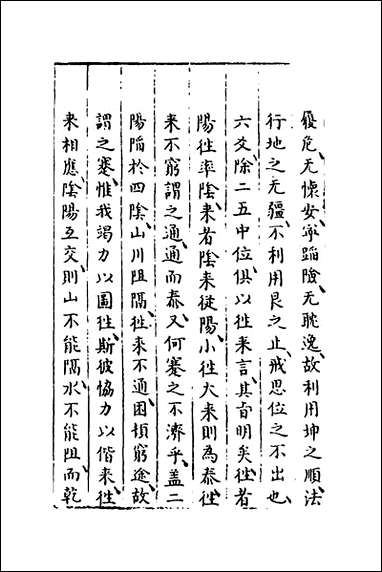 履危无懷安寧蹈險无耽逸故利用坤之順法
行地之无疆不利用艮之止戒思位之不出也
六爻除二五中位俱以徃来言其旨明矣徃者
陽徃率陰来者陰来從陽小徃大来則為泰徃
来不窮謂之通通而泰又何蹇之不濟乎盖二
陽陷於四陰山川阻隔徃来不通困頓窮途故
謂之蹇惟我竭力以圖徃斯彼恊力以偕来徃
来相應陰陽互交則山不能隔水不能阻而乾